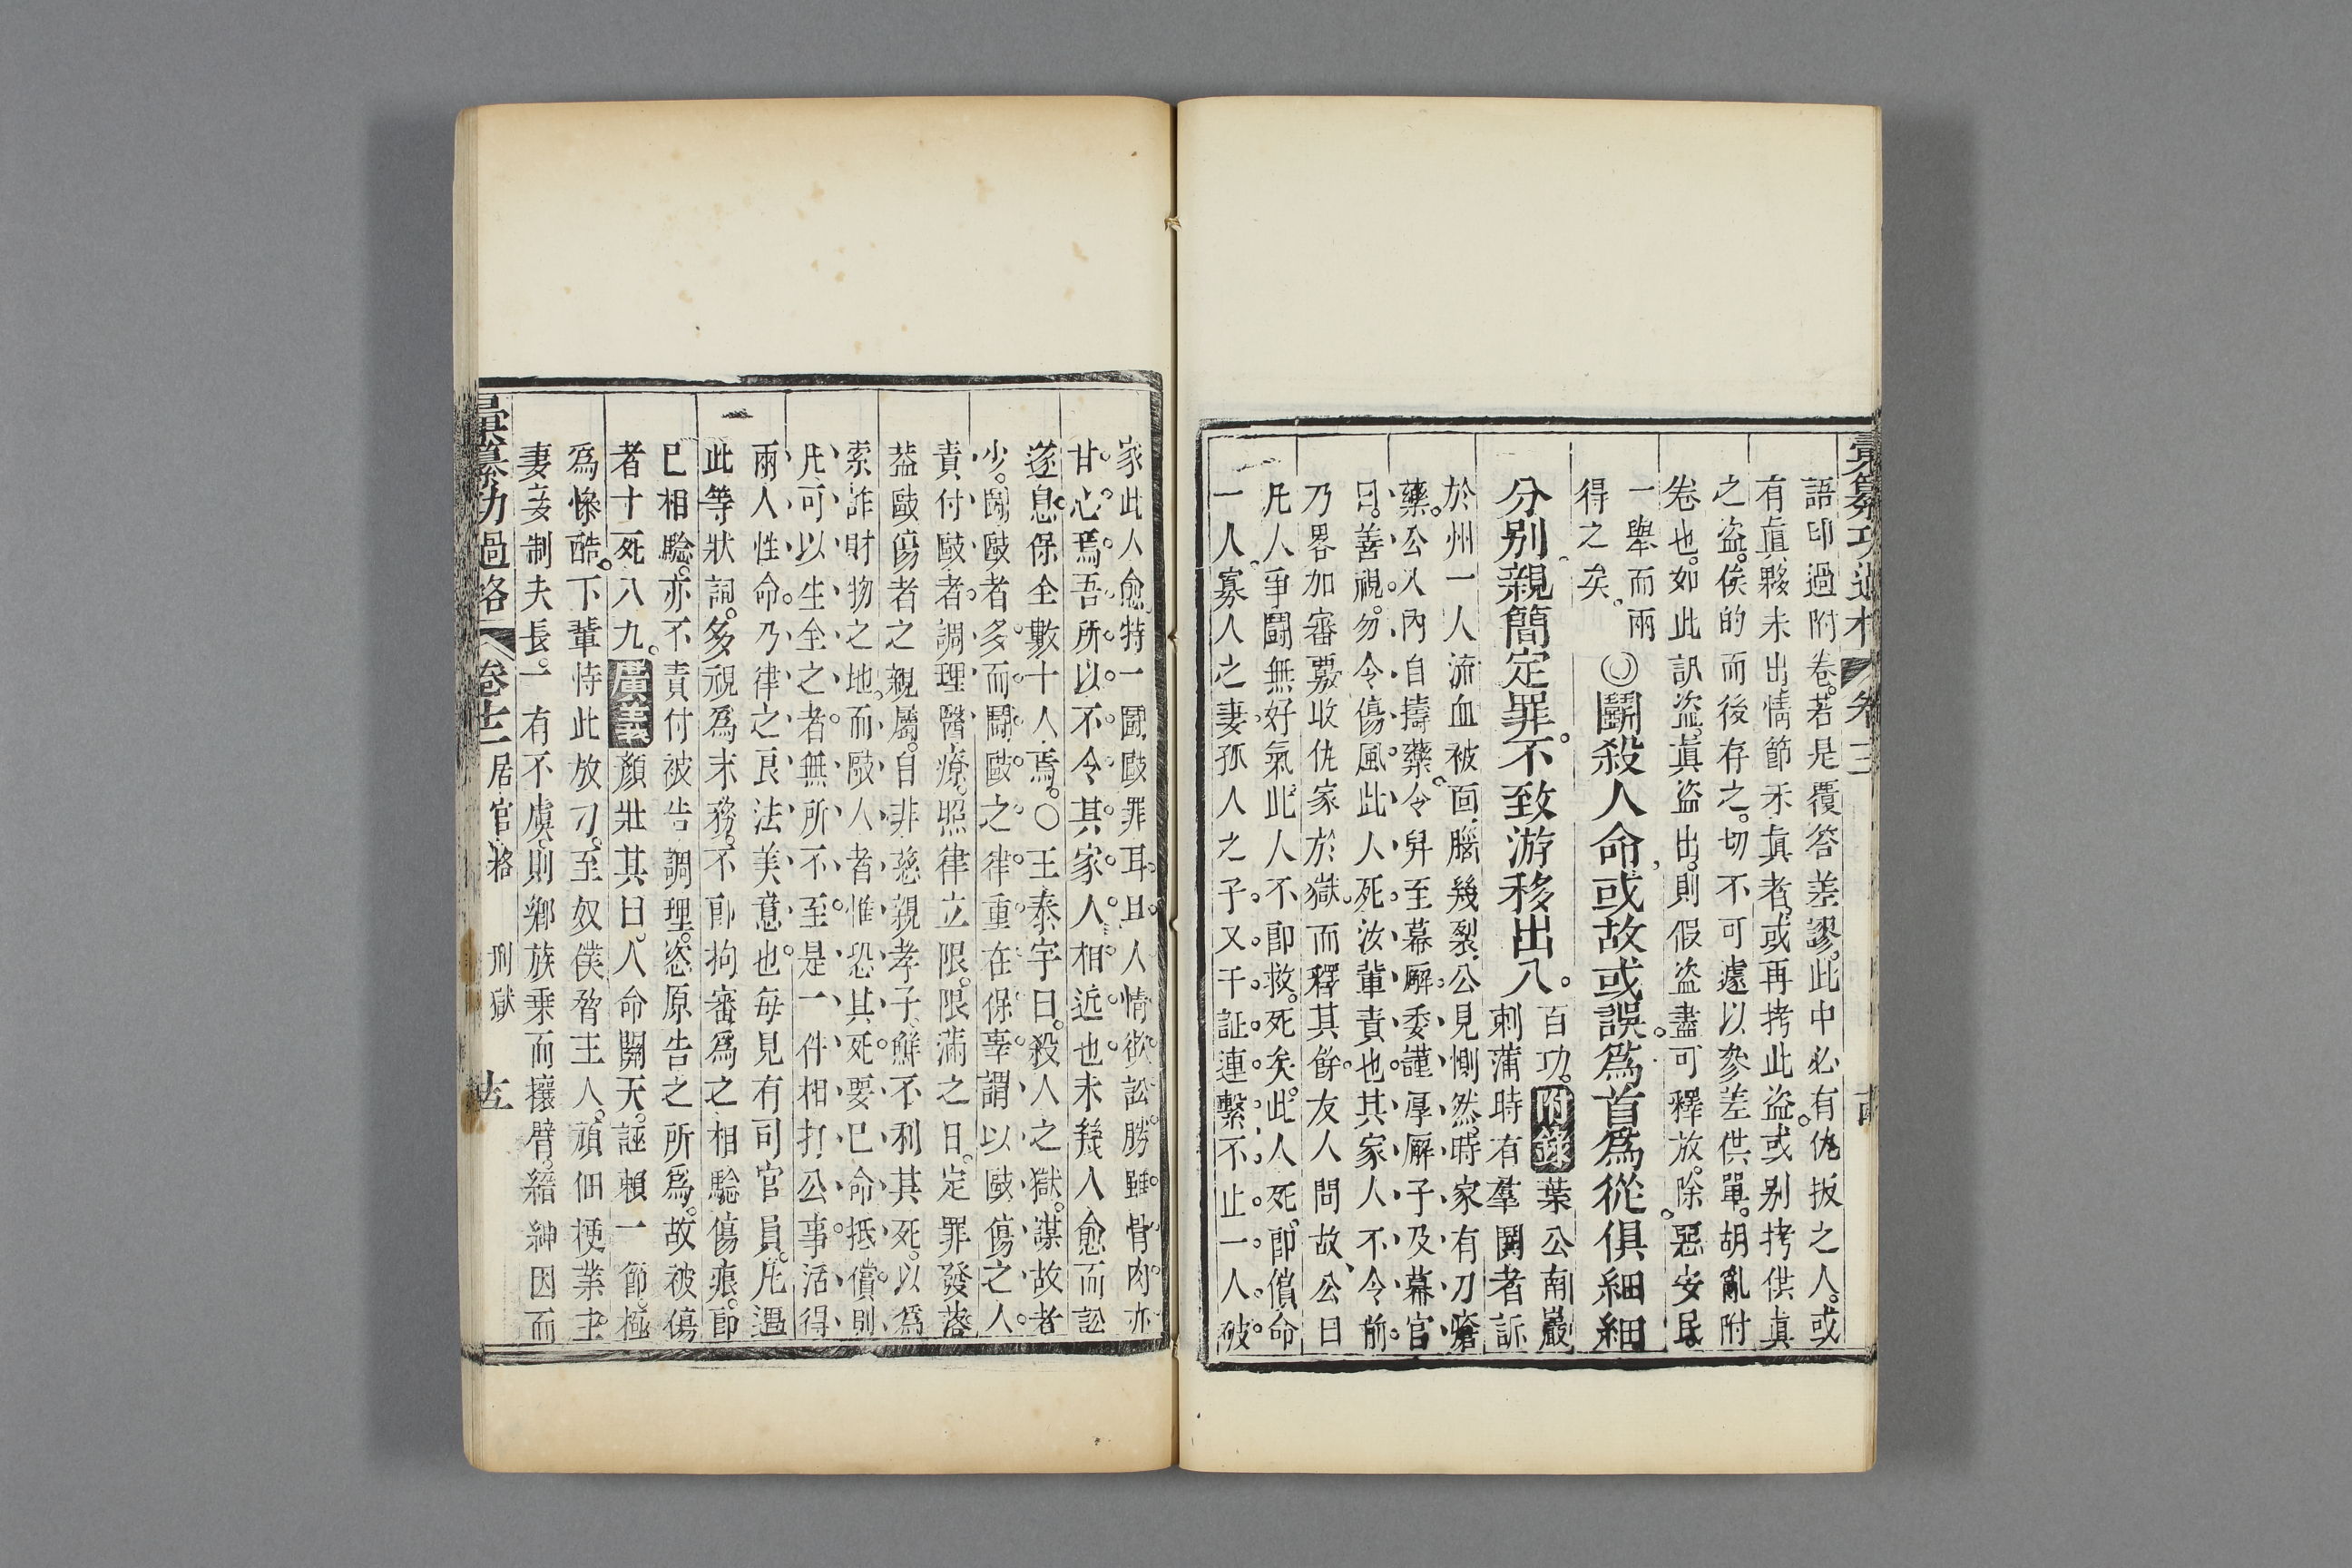 彙纂功過格 卷十二
語印過附卷若是覆答差謬此中必有仇扳之人或
有眞夥未出情節未眞者或再拷此盜或别拷供眞
之盜俟的而後存之切不可遽以參差供單胡亂附
卷也如此訊盜眞盜出則假盜盡可釋放除惡安民
一舉而兩
得之矣
◎鬪殺人命或故或誤爲首爲從俱細細
分别親簡定罪不致游移出入
百功附錄葉公南巖
刺蒲時有羣鬪者訴
於州一人流血被面腦幾裂公見惻然時家有刀瘡
藥公入內自擣藥令舁至幕廨委謹厚廨子及幕官
曰善視勿令傷風此人死汝輩責也其家人不令前
乃畧加審覈收仇家於獄而釋其餘友人問故公曰
凡人爭鬪無好氣此人不卽救死矣此人死卽償命
一人寡人之妻孤人之子又干証連繫不止一人破
家此人愈特一鬪敺罪耳且人情欲訟勝雖骨肉亦
甘心焉吾所以不令其家人相近也未幾人愈而訟
遂息保全數十人焉○王泰宇曰殺人之獄謀故者
少鬪敺者多而鬪敺之律重在保辜謂以敺傷之人
責付敺者調理醫療照律立限限滿之日定罪發落
葢敺傷者之親屬自非慈親孝子鮮不利其死以爲
索詐財物之地而敺人者惟恐其死要已命抵償則
凡可以生全之者無所不至是一件相打公事活得
兩人性命乃律之良法美意也每見有司官員凡遇
此等狀詞多視爲末務不卽拘審爲之相驗傷痕卽
已相驗亦不責付被告調理恣原告之所爲故被傷
者十死八九廣義顏壯其曰人命關天誣賴一節極
爲慘酷下輩恃此放刁至奴僕脅主人頑佃梗業主
妻妾制夫長一有不虞則鄉族乘而攘臂縉紳因而
彙纂功過格 卷十二 居官格 刑獄 十五